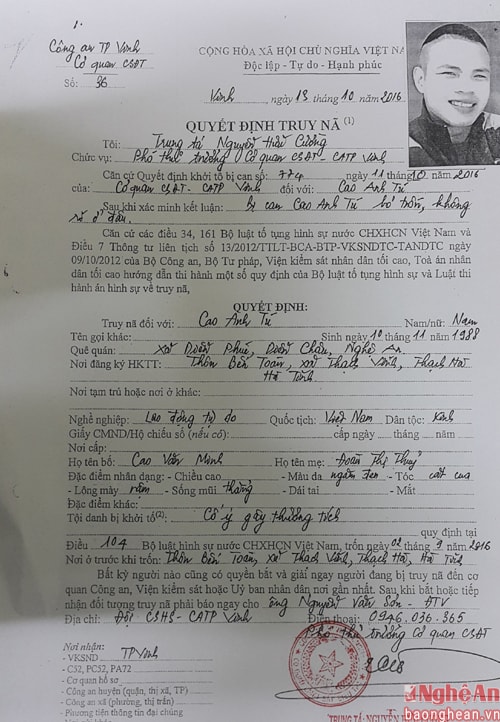 Công an TP Vinh
Cơ quan CSĐT
Số: 36
CỘNG HÒA XÃ HỘI CHỦ NGHĨA VIỆT NA
Độc lập - Tự do - Hạnh phúc
Vinh, ngày 13 tháng 10 năm 2016
QUYẾT ĐỊNH TRUY NÃ (1)
Tôi: Trung tá Nguyễn Hữu Cường
Chức vụ: Phó thủ trưởng Cơ quan CSĐT - CATP Vinh
Căn cứ Quyết định khởi tố bị can số: 774 ngày 11 tháng 10 năm 2016
của: Cơ quan CSĐT - CATP Vinh đối với: Cao Anh Tú
Sau khi xác minh kết luận: bị can Cao Anh Tú bỏ trốn, không
rõ ở đâu.
Căn cứ các điều 34, 161 Bộ luật tố tụng hình sự nước CHXHCN Việt Nam và
Điều 7 Thông tư liên tịch số 13/2012/TTLT-BCA-BTP-VKSNDTC-TANDTC ngày
09/10/2012 của Bộ Công an, Bộ Tư pháp, Viện kiểm sát nhân dân tối cao, Toà án nhân
dân tối cao hướng dẫn thi hành một số quy định của Bộ luật tố tụng hình sự và Luật thi
hành án hình sự về truy nã,
QUYẾT ĐỊNH:
Truy nã đối với: Cao Anh Tú Nam/nữ: Nam
Tên gọi khác: Sinh ngày 10 tháng 11 năm 1988
Quê quán: xã Diễn Phú, Diễn Châu, Nghệ An
Nơi đăng ký HKTT: Thôn Bến Toàn, xã Thạch Vĩnh, Thạch Hà
Hà Tĩnh
Nơi tạm trú hoặc nơi ở khác:
Nghề nghiệp: Lao động tự do Quốc tịch: Việt Nam Dân tộc: Kinh
Giấy CMND/Hộ chiếu số (nếu có): cấp ngày tháng năm
Nơi cấp:
Họ tên bố: Cao Văn Minh Họ tên mẹ: Đoàn Thị Thuỷ
Đặc điểm nhân dạng: - Chiều cao - Màu da ngăm đen - Tóc cắt cua
- Lông mày rậm - Sống mũi thẳng - Dái tai - Mắt
Đặc điểm khác:
Tội danh bị khởi tố(2): Cố ý gây thương tích
quy định tại
Điều 104 Bộ luật hình sự nước CHXHCN Việt Nam, trốn ngày 02 tháng 9 năm 2016
Nơi ở trước khi trốn: Thôn Bến Toàn, xã Thạch Vĩnh, Thạch Hà, Hà Tĩnh
Bất kỳ người nào cũng có quyền bắt và giải ngay người đang bị truy nã đến cơ
quan Công an, Viện kiểm sát hoặc Uỷ ban nhân dân nơi gần nhất. Sau khi bắt hoặc tiếp
nhận đối tượng truy nã phải báo ngay cho ông Nguyễn Văn Sơn - ĐTV
Địa chỉ: Đội CSHS - CATP Vinh Điện thoại: 0946.036.365
Phó thủ trưởng Cơ quan CSĐT
Nơi nhận:
- VKSND TP Vinh
- C52, PC52, PA72
- Cơ quan hồ sơ
- Công an huyện (quận, thị xã, TP)
- Công an xã (phường, thị trấn)
- Phương tiện thông tin đại chúng
TRUNG TÁ: NGUYỄN
Nghệ An
baonghean.vn